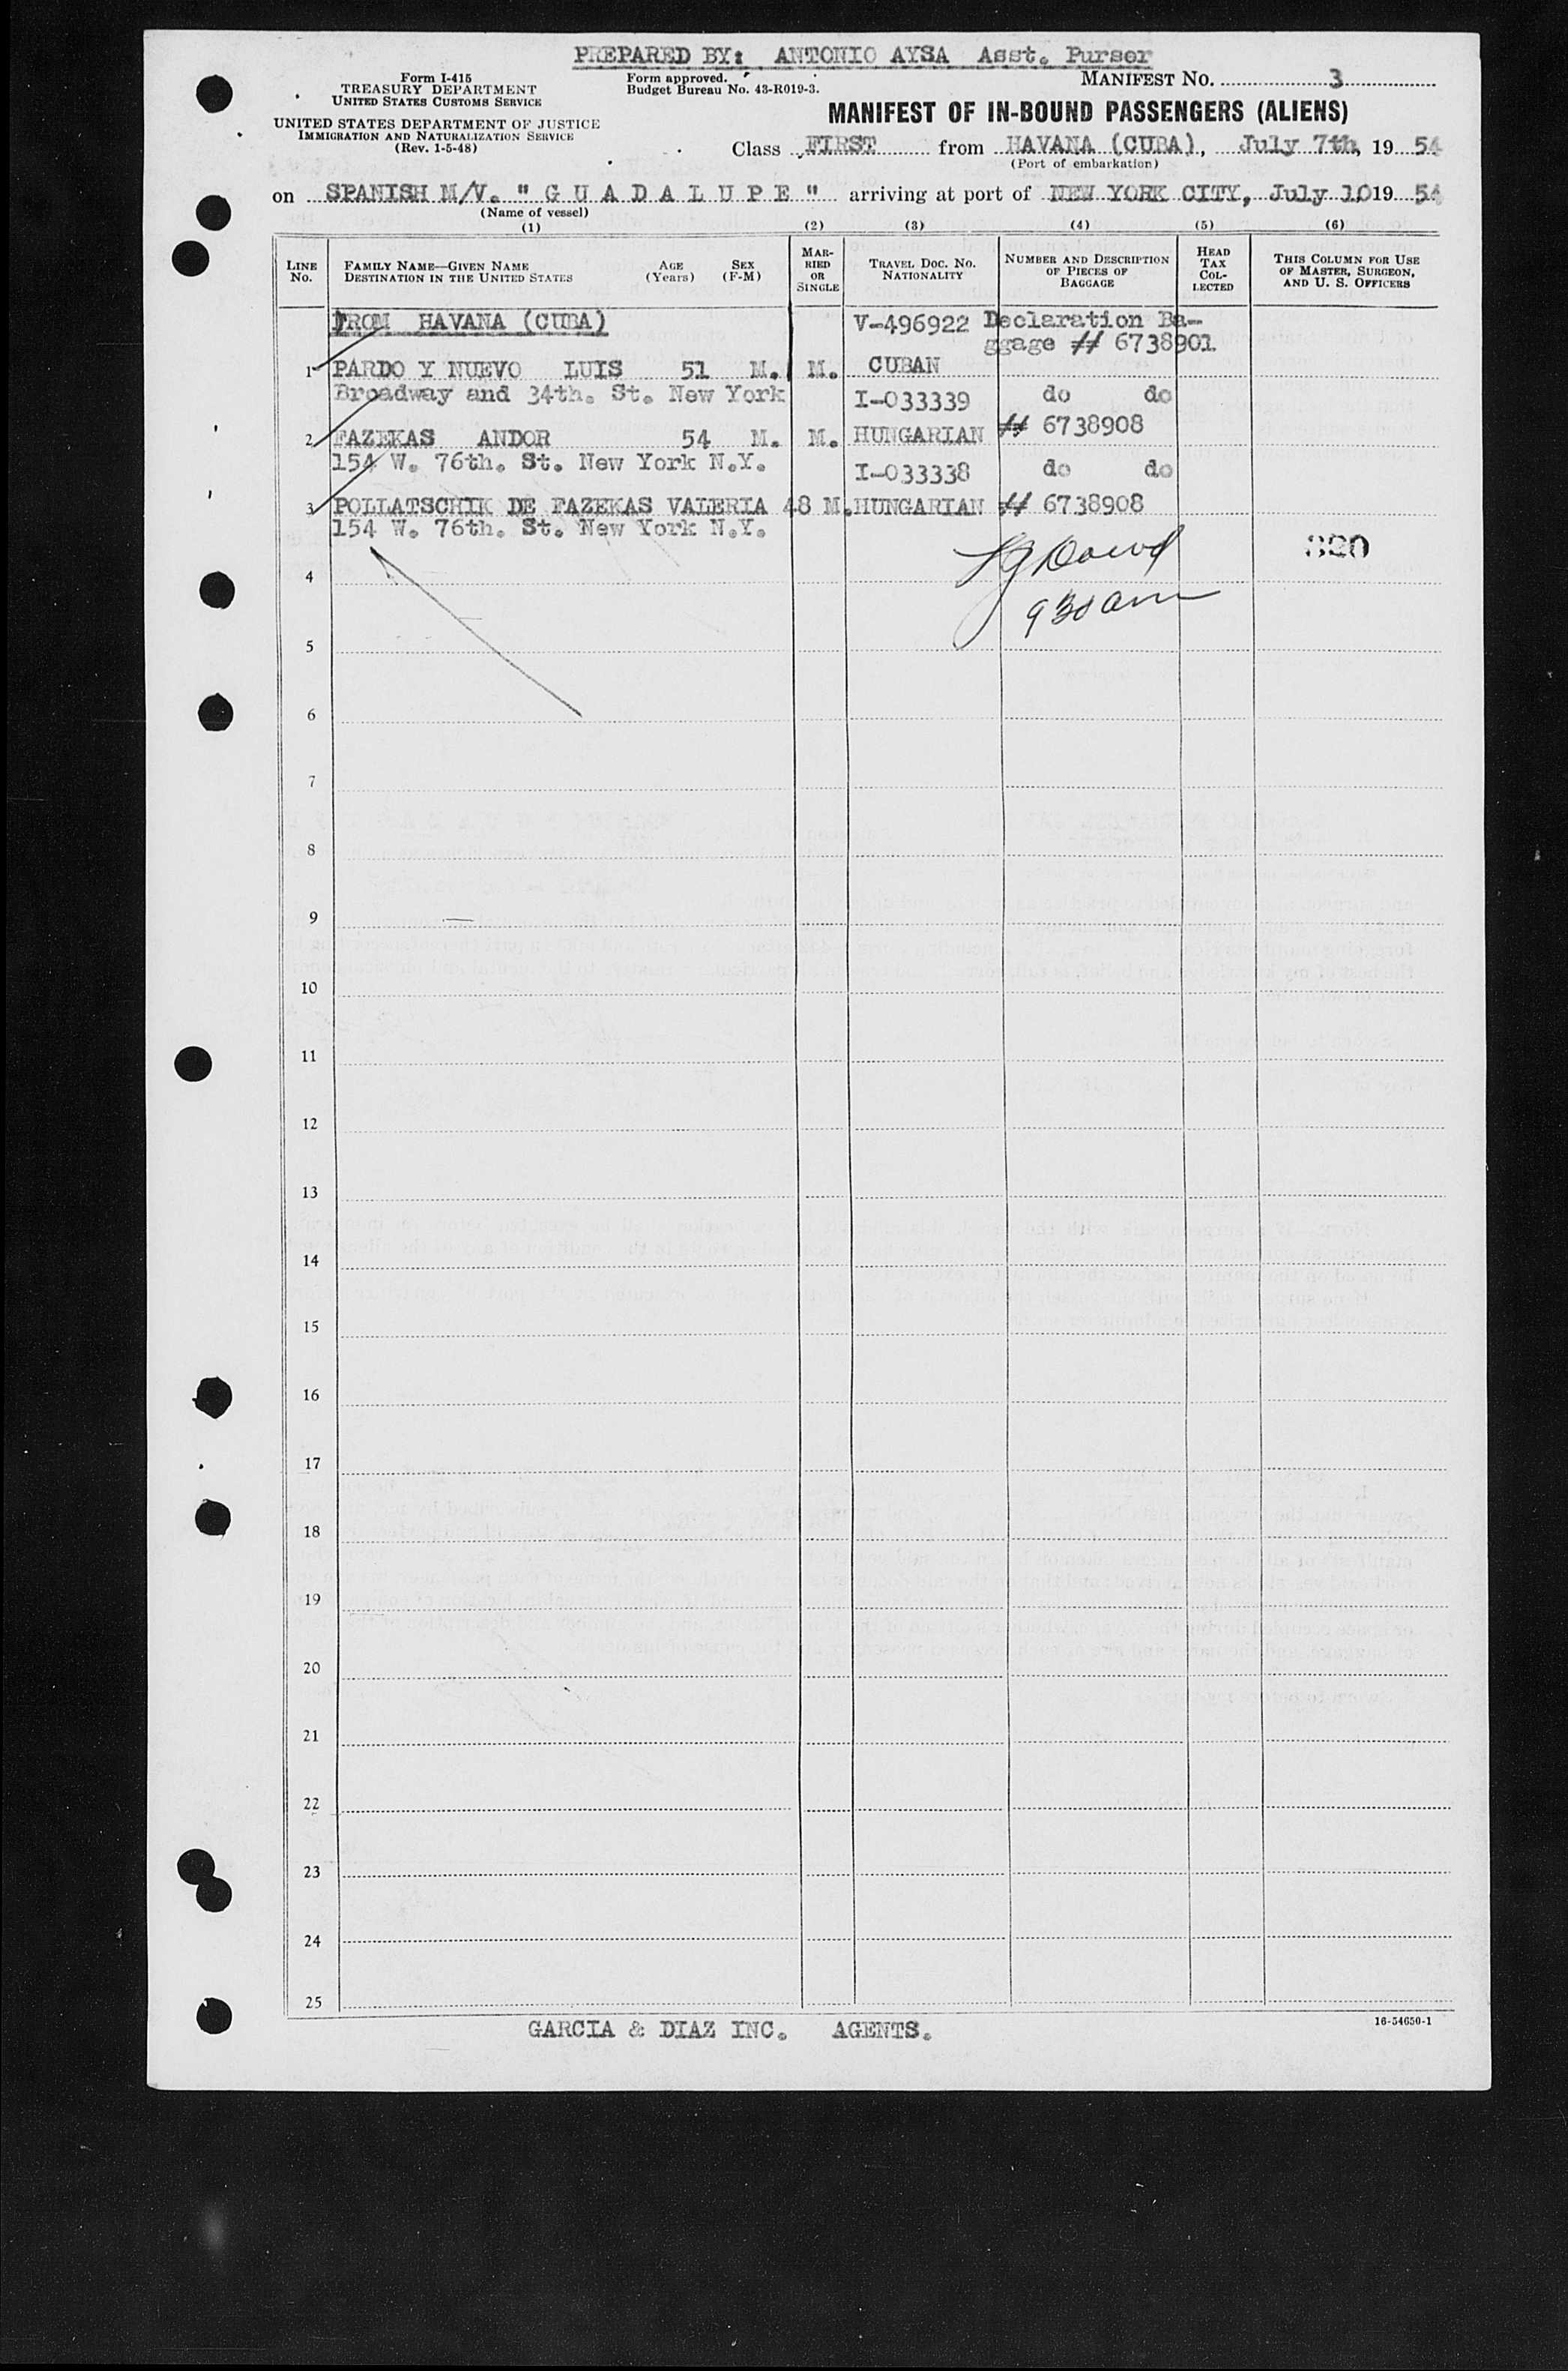 PREPARED BY: ANTONIO AYSA Asst. Purser
Form I-415
TREASURY DEPARTMENT
UNITED STATES CUSTOMS SERVICE
UNITED STATES DEPARTMENT OF JUSTICE
IMMIGRATION AND NATURALIZATION SERVICE
(Rev. 1-5-48)
Form approved.
Budget Bureau No. 43-R019-3.
MANIFEST NO. 3
MANIFEST OF IN-BOUND PASSENGERS (ALIENS)
Class FIRST from HAVANA (CUBA), July 7th, 19 54
(Port of embarkation)
on SPANISH M/V. " G U A D A L U P E " arriving at port of NEW YORK CITY, July 10 19 54
(Name of vessel)
(1) (2) (3) (4) (5) (6)
LINE NO.
FAMILY NAME—GIVEN NAME
DESTINATION IN THE UNITED STATES
AGE (Years)
SEX (F-M)
MARRIED OR SINGLE
TRAVEL DOC. NO.
NATIONALITY
NUMBER AND DESCRIPTION OF PIECES OF BAGGAGE
HEAD TAX COLLECTED
THIS COLUMN FOR USE OF MASTER, SURGEON, AND U. S. OFFICERS
FROM HAVANA (CUBA) V-496922 Declaration Ba-
ggage # 6738901
1 PARDO Y NUEVO LUIS 51 M. M. CUBAN
Broadway and 34th. St. New York I-033339 do do
2 FAZEKAS ANDOR 54 M. M. HUNGARIAN # 6738908
154 W. 76th. St. New York N.Y. I-033338 do do
3 POLLATSCHIK DE FAZEKAS VALERIA 48 M. HUNGARIAN # 6738908
154 W. 76th. St. New York N.Y.
320
4
930 am
5
6
7
8
9
10
11
12
13
14
15
16
17
18
19
20
21
22
23
24
25
GARCIA & DIAZ INC. AGENTS.
16-54650-1